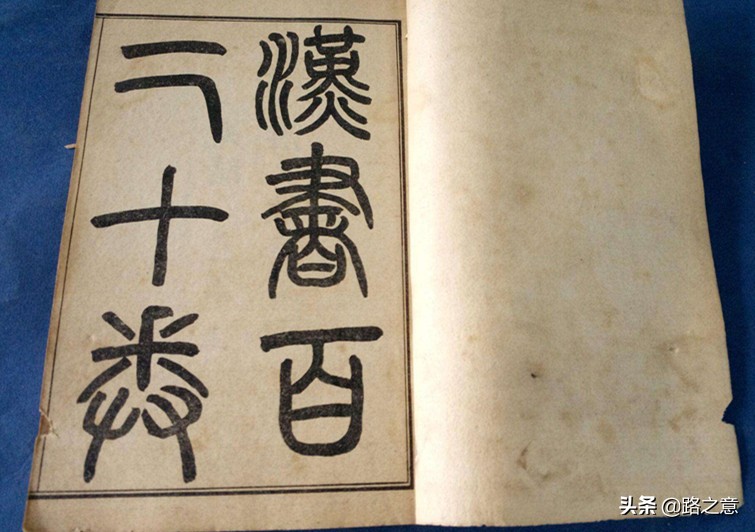 漢書百
二十卷
头条 @路之意